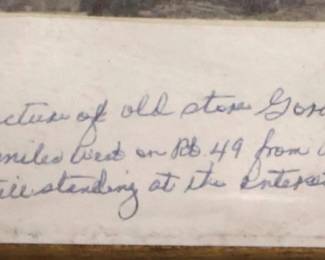 cture of old store Gor
miles West on Rt. 49 from
till standing at the inters